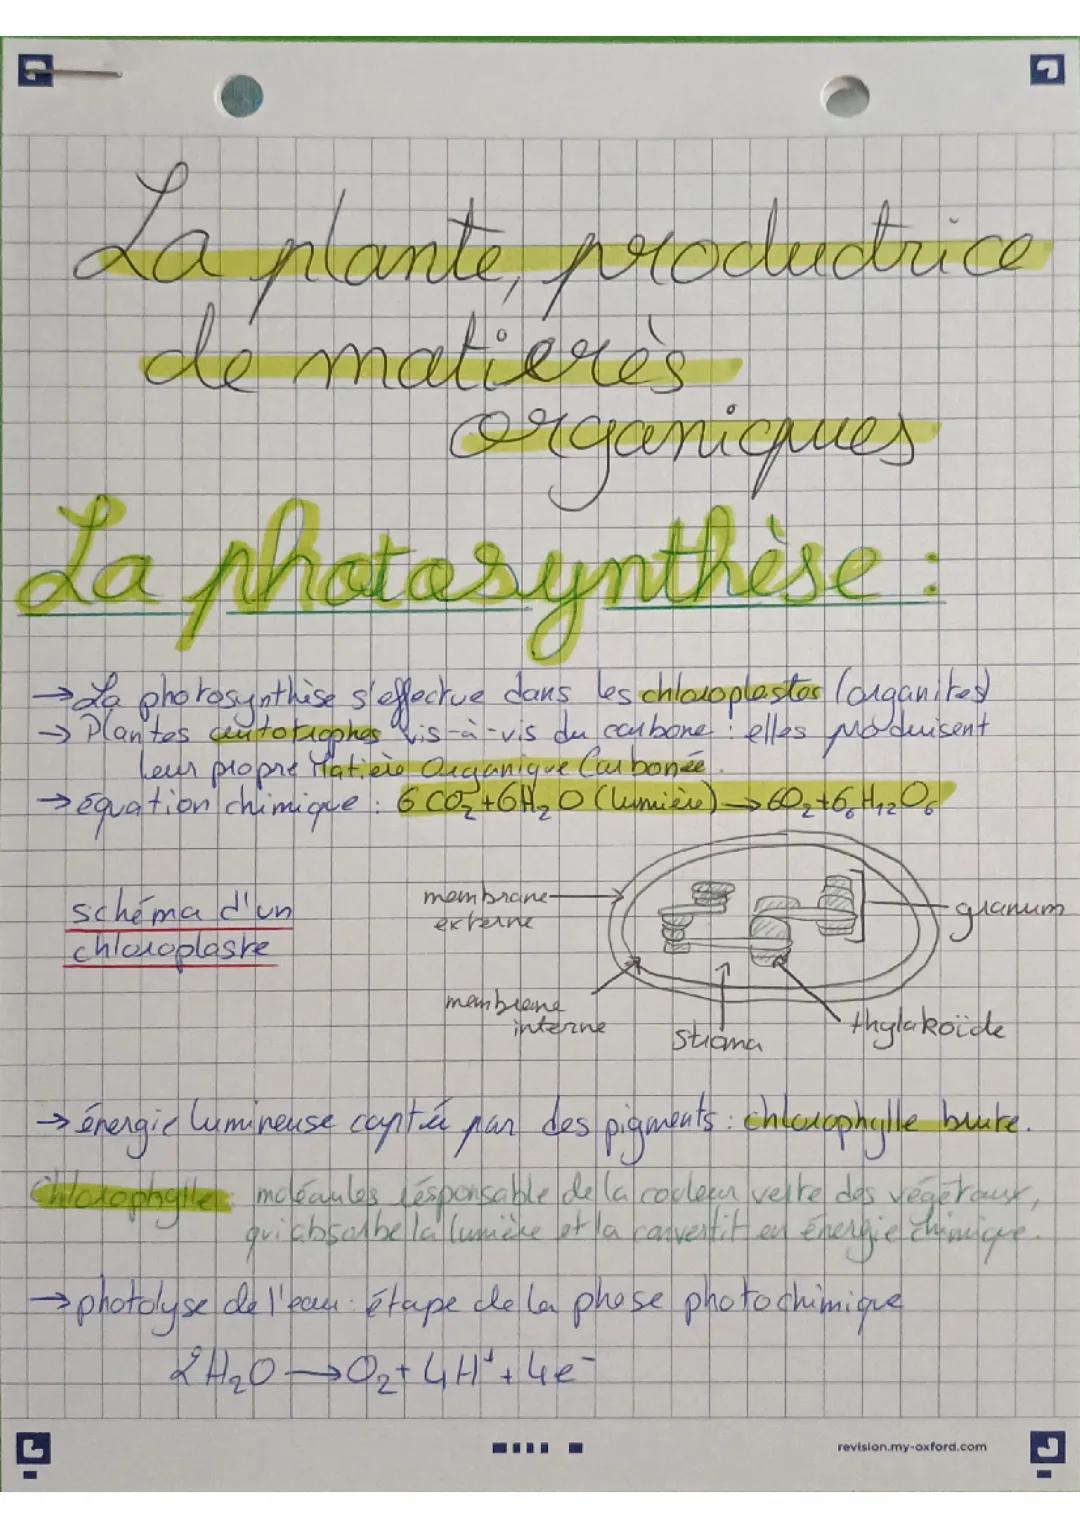 La plante, productrice
de matierès
organiques
La photosynthèse :
→ La photosynthèse s'effectue dans les chloroplastes (organites)
→ Plantes autotrophes vis-à-vis du carbone : elles produisent
leur propre Matière Organique Carbonée.
→ équation chimique : 6 CO₂ + 6H₂O (lumière) → 6O₂ + 6₆H₁₂O₆
schéma d'un
chloroplaste
membrane
externe
granum
membrane
interne
stroma
thylakoïde
→ énergie lumineuse captée par des pigments : chlorophylle brute.
Chlorophylle : molécules résponsable de la couleur verte des végétaux,
qui absorbe la lumière et la convertit en énergie chimique.
→ photolyse de l'eau : étape de la phase photochimique
2H₂O → O₂ + 4H⁺ + 4e⁻
revision.my-oxford.com